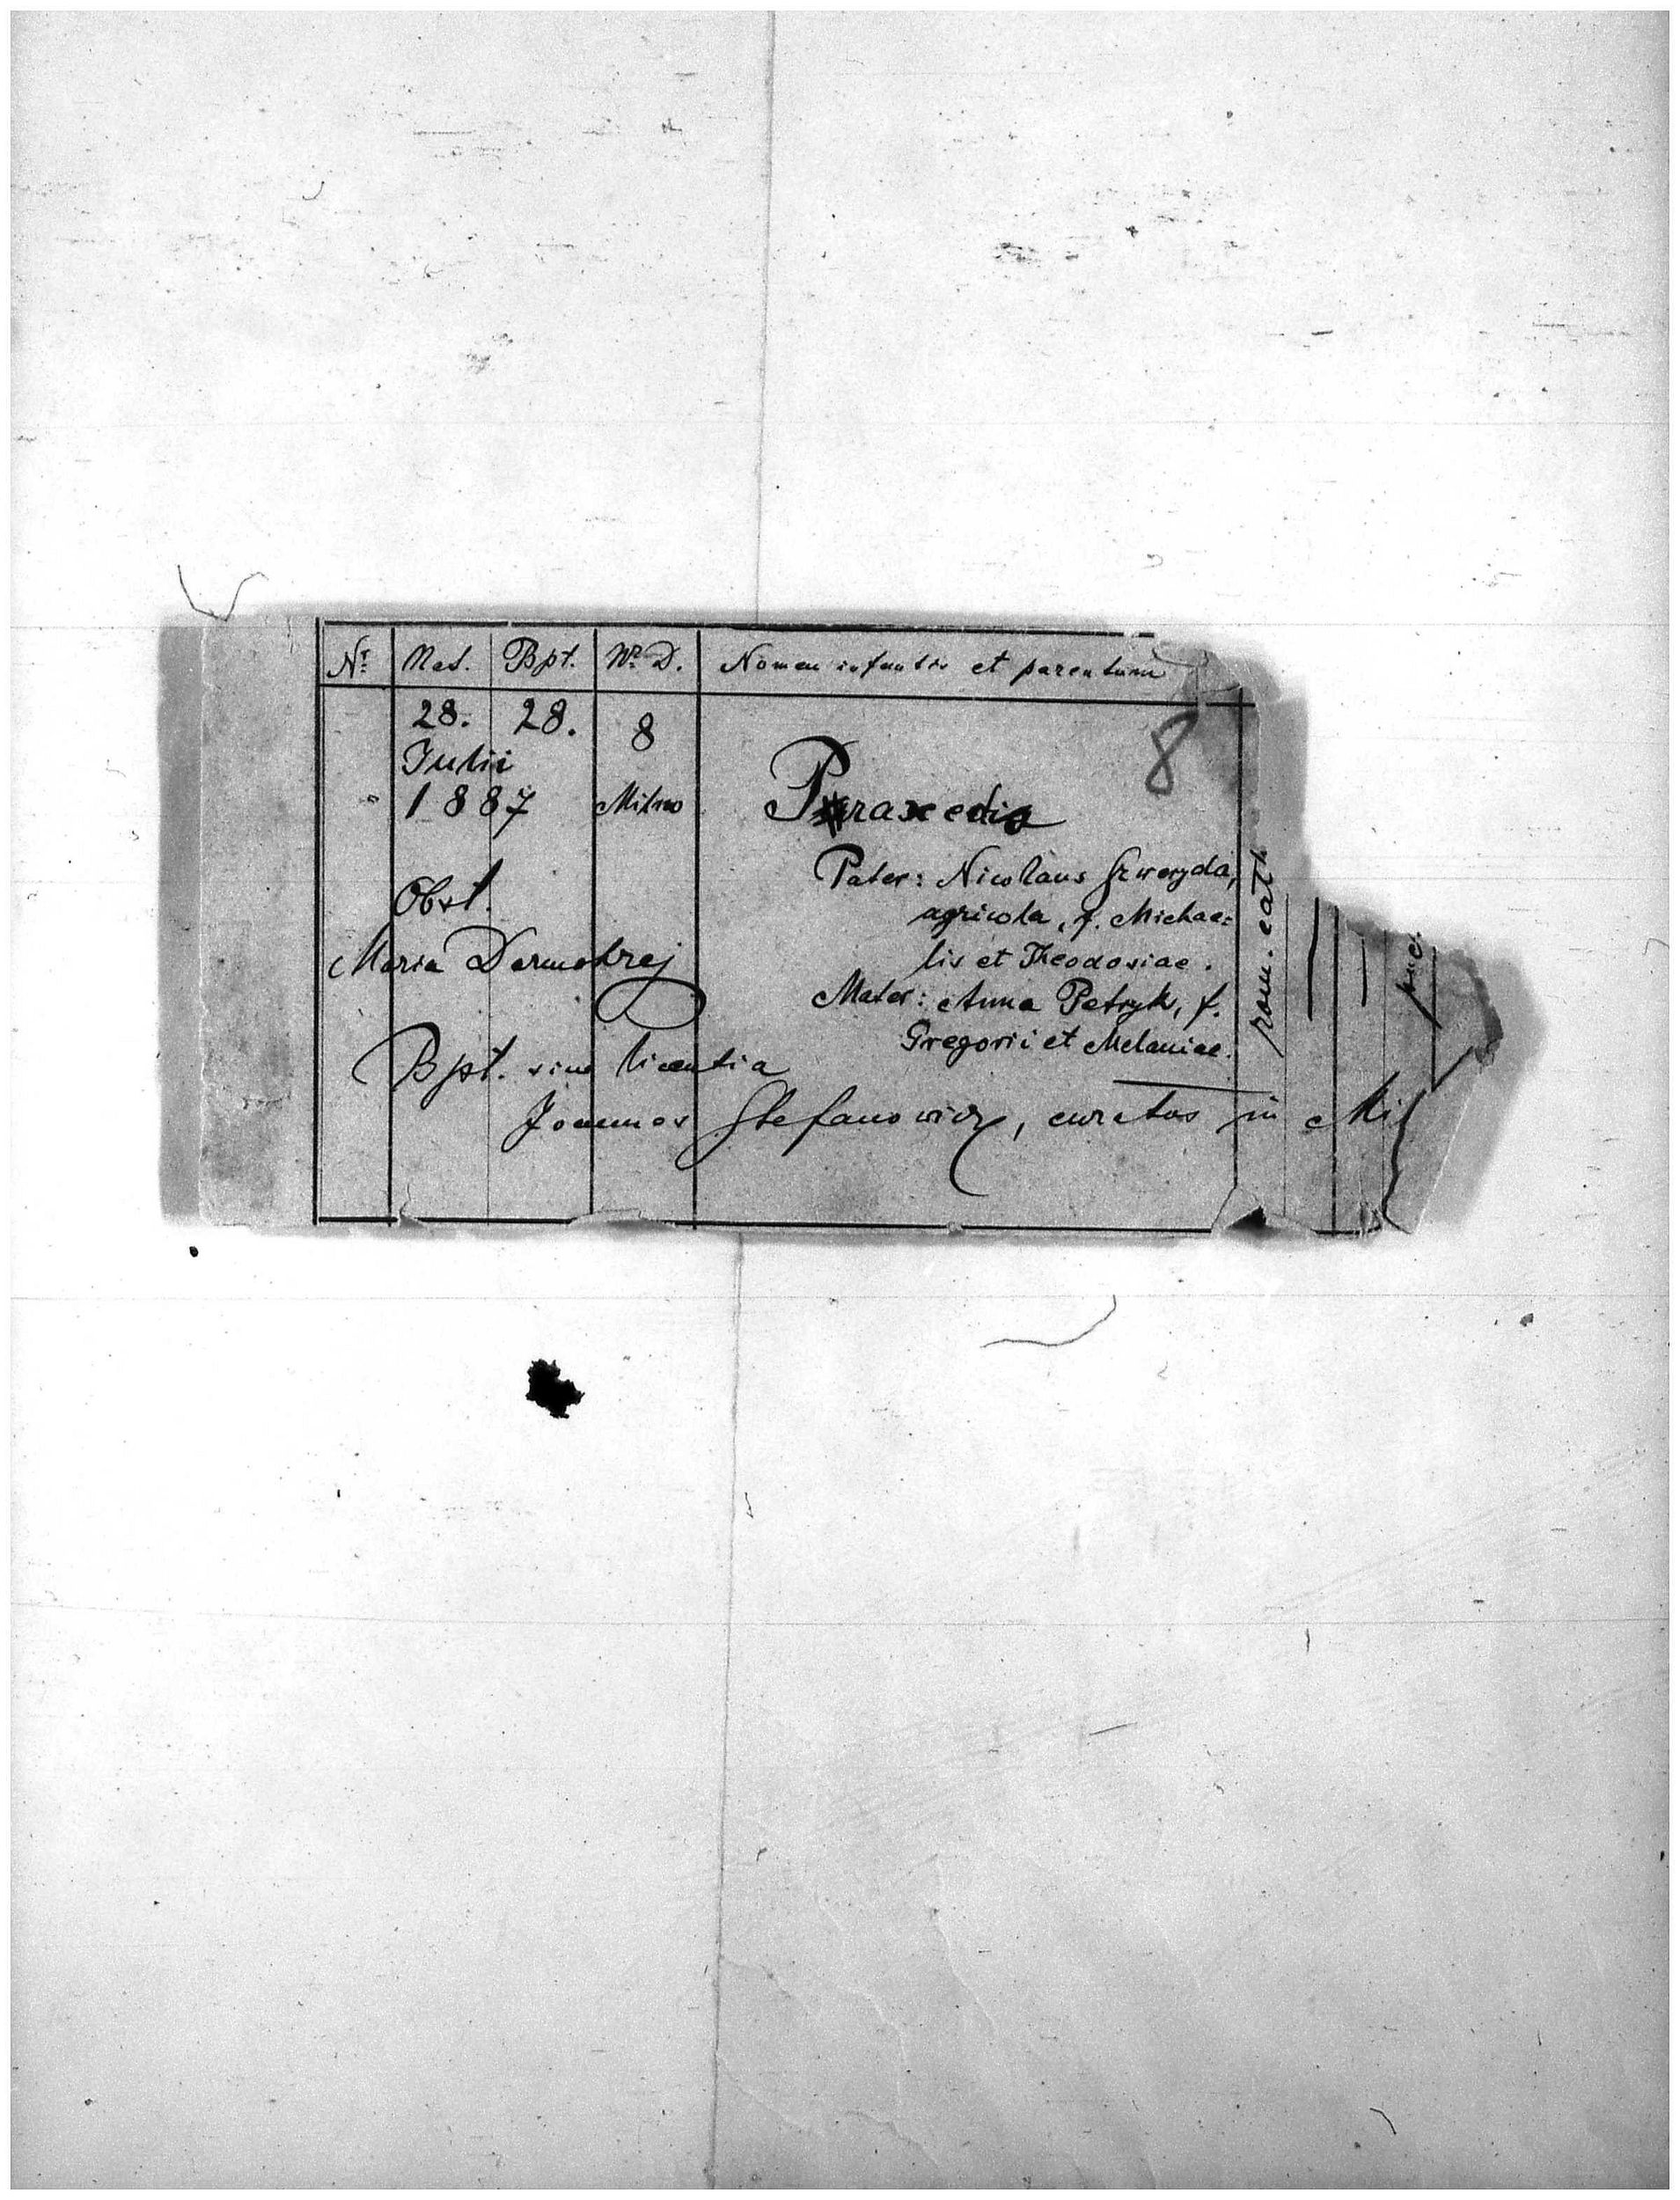 Nr. Nat. Bpt. Nr. D. Nomen infantis et parentum
28. 28. 8
8
Julii
1887 Milno
Praxedis
Pater: Nicolaus Szweryda,
agricola, f. Michae=
lis et Theodosiae.
Mater: Anna Petryk, f.
Gregorii et Melaniae.
rom. cath.
Obst.
Maria Darmohraj
Bpt. sine licentia
Joannes Stefanowicz, curatus in Mil